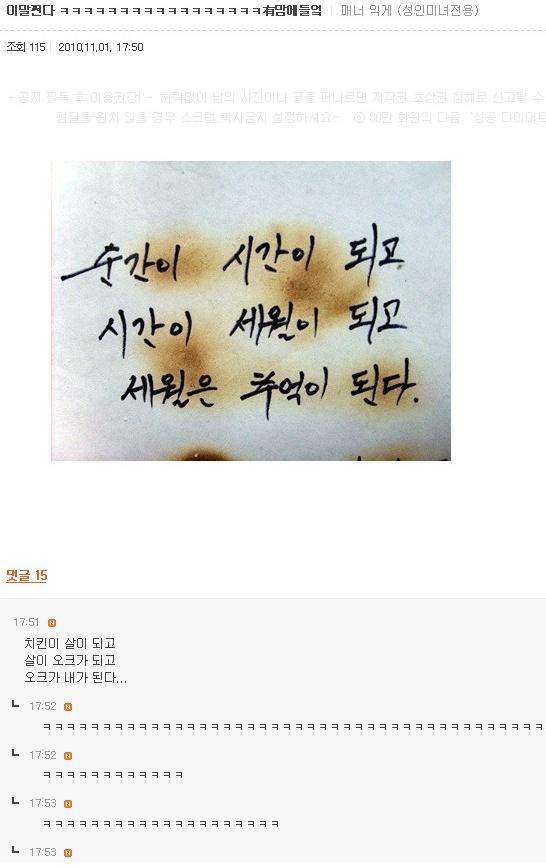 이말쩐다 ㅋㅋㅋㅋㅋㅋㅋㅋㅋㅋㅋㅋㅋㅋㅋㅋㅋ有맘에들엌 | 매너 익게 (성인미녀전용)
조회 115 | 2010.11.01. 17:50
- 공지 필독 후 이용권장! - 허락없이 남의 사진이나 글을 퍼나르면 저작권 초상권 침해로 신고될 수
펌질을 원치 않을 경우 스크랩 복사금지 설정하셔요~ ⓒ 80만 회원의 다음 "성공 다이어트
순간이 시간이 되고
시간이 세월이 되고
세월은 추억이 된다.
댓글 15
17:51 N
치킨이 살이 되고
살이 오크가 되고
오크가 내가 된다...
17:52 N
ㅋㅋㅋㅋㅋㅋㅋㅋㅋㅋㅋㅋㅋㅋㅋㅋㅋㅋㅋㅋㅋㅋㅋㅋㅋㅋㅋㅋㅋㅋㅋㅋㅋㅋㅋㅋㅋㅋㅋㅋㅋㅋ
17:52 N
ㅋㅋㅋㅋㅋㅋㅋㅋㅋㅋㅋㅋ
17:53 N
ㅋㅋㅋㅋㅋㅋㅋㅋㅋㅋㅋㅋㅋㅋㅋㅋㅋㅋㅋㅋ
17:53 N